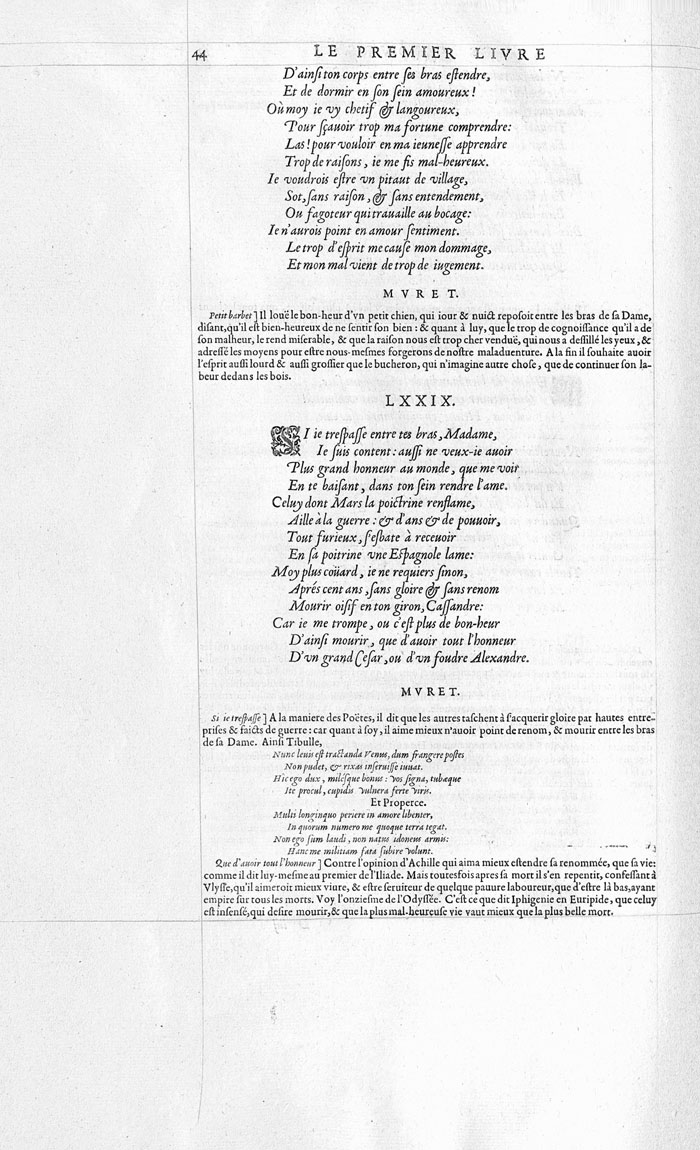 44 LE PREMIER LIVRE
D'ainſi ton corps entre ſes bras eſtendre,
Et de dormir en ſon ſein amoureux!
Où moy ie vy chetif & langoureux,
Pour ſçauoir trop ma fortune comprendre:
Las! pour vouloir en ma ieuneſſe apprendre
Trop de raiſons, ie me fis mal-heureux.
Ie voudrois eſtre vn pitaut de village,
Sot, ſans raiſon, & ſans entendement,
Ou fagoteur qui trauaille au bocage:
Ie n'aurois point en amour ſentiment.
Le trop d'eſprit me cauſe mon dommage,
Et mon mal vient de trop de iugement.
MVRET.
Petit barbet] Il louë le bon-heur d'vn petit chien, qui iour & nuict repoſoit entre les bras de ſa Dame,
diſant, qu'il eſt bien-heureux de ne ſentir ſon bien: & quant à luy, que le trop de cognoiſſance qu'il a de
ſon malheur, le rend miſerable, & que la raiſon nous eſt trop cher venduë, qui nous a deſſillé les yeux, &
adreſſé les moyens pour eſtre nous-meſmes forgerons de noſtre maladuenture. A la fin il ſouhaite auoir
l'eſprit auſſi lourd & auſſi groſſier que le bucheron, qui n'imagine autre choſe, que de continuer ſon la-
beur dedans les bois.
LXXIX.
SI ie treſpaſſe entre tes bras, Madame,
Ie ſuis content: auſſi ne veux-ie auoir
Plus grand honneur au monde, que me voir
En te baiſant, dans ton ſein rendre l'ame.
Celuy dont Mars la poictrine renflame,
Aille à la guerre: & d'ans & de pouuoir,
Tout furieux, s'eſbate à receuoir
En ſa poitrine vne Eſpagnole lame:
Moy plus coüard, ie ne requiers ſinon,
Aprés cent ans, ſans gloire & ſans renom
Mourir oiſif en ton giron, Caſſandre:
Car ie me trompe, ou c'eſt plus de bon-heur
D'ainſi mourir, que d'auoir tout l'honneur
D'vn grand Ceſar, ou d'vn foudre Alexandre.
MVRET.
Si ie treſpaſſe] A la maniere des Poëtes, il dit que les autres taſchent à s'acquerir gloire par hautes entre-
priſes & faicts de guerre: car quant à ſoy, il aime mieux n'auoir point de renom, & mourir entre les bras
de ſa Dame. Ainſi Tibulle,
Nunc leuis eſt tractanda Venus, dum frangere poſtes
Non pudet, & rixas inſeruiſſe iuuat.
Hic ego dux, miléſque bonus: vos ſigna, tubæque
Ite procul, cupidis vulnera ferte viris.
Et Properce.
Multi longinquo periere in amore libenter,
In quorum numero me quoque terra tegat.
Non ego ſum laudi, non natus idoneus armis:
Hanc me militiam fata ſubire volunt.
Que d'auoir tout l'honneur] Contre l'opinion d'Achille qui aima mieux eſtendre ſa renommée, que ſa vie:
comme il dit luy-meſme au premier de l'Iliade. Mais toutesfois apres ſa mort il s'en repentit, confeſſant à
Vlyſſe, qu'il aimeroit mieux viure, & eſtre ſeruiteur de quelque pauure laboureur, que d'eſtre là bas, ayant
empire ſur tous les morts. Voy l'onzieſme de l'Odyſſée. C'eſt ce que dit Iphigenie en Euripide, que celuy
eſt inſenſé, qui deſire mourir, & que la plus mal-heureuſe vie vaut mieux que la plus belle mort.